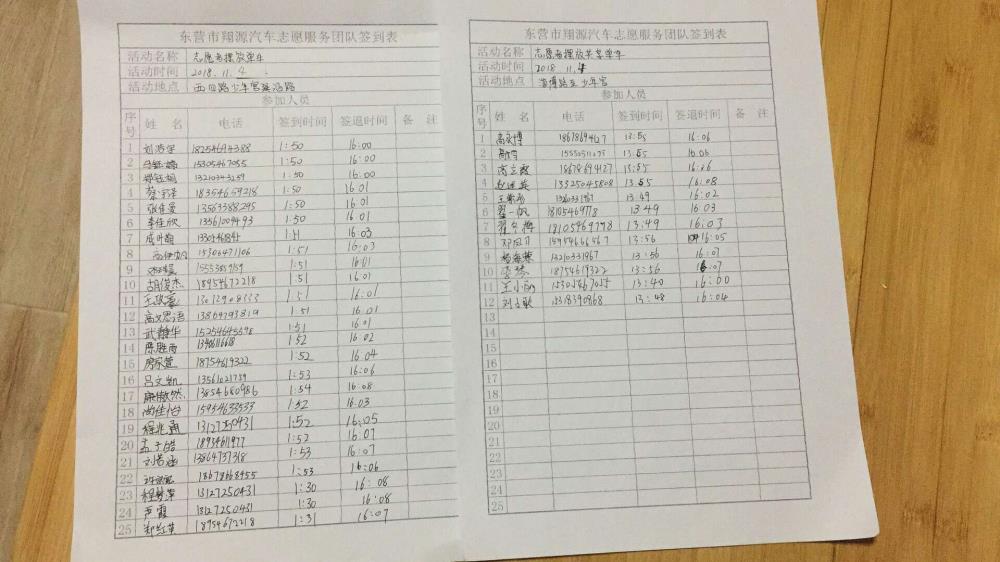 东营市翔源汽车志愿服务团队签到表
活动名称 志愿者摆放单车
活动时间 2018.11.4
活动地点 西四路少年宫延沿路
参加人员
序号 姓名 电话 签到时间 签退时间 备注
1 1:50 16:00
2 15305467055 1:50 16:00
3 13210343259 1:50 16:00
4 18354659218 1:50 16:01
5 张佳曼 13563388295 1:50 16:01
6 李佳欣 13561009493 1:50 16:01
7 16:03
8 15306471106 1:51 16:03
9 1:51
10 胡俊杰 18954672218 1:51 16:01
11 王政豪 1:51 16:01
12 高文思语 13864793819 1:51 16:01
13 武静华 1:51 16:01
14 1:52 16:02
15 18754619322 1:52 16:04
16 吕文凯 13561021759 1:53 16:06
17 13854680986 1:54 16:08
18 尚佳怡 15954633533 1:52 16:03
19 程兆通 13127250431 1:52 16:05
20 孟子皓 18954611977 1:52 16:07
21 刘若涵 13864737318 1:53 16:07
22 18678668955 1:53 16:06
23 程梦萍 13127250431 1:30 16:08
24 芦霞 13127250431 1:30 16:08
25 郑红英 18954672218 1:31 16:07
东营市翔源汽车志愿服务团队签到表
活动名称 志愿者摆放共享单车
活动时间 2018.11.4
活动地点 淄博路至少年宫
参加人员
序号 姓名 电话 签到时间 签退时间 备注
1 13:55 16:06
2 13:55 16:06
3 高立霞 18678694127 13:55 16:06
4 13325045808 13:55 16:08
5 13210331967 13:49 16:02
6 翟一帆 18105469778 13:49 16:03
7 18105469798 13:49 16:03
8 邓凤刁 15954666467 13:56 16:05
9 杨海燕 13210331967 13:56 16:07
10 李琴 18754619322 13:56 16:07
11 王小丽 15305467055 13:40 16:00
12 刘立敏 15318390868 13:48 16:04
13
14
15
16
17
18
19
20
21
22
23
24
25